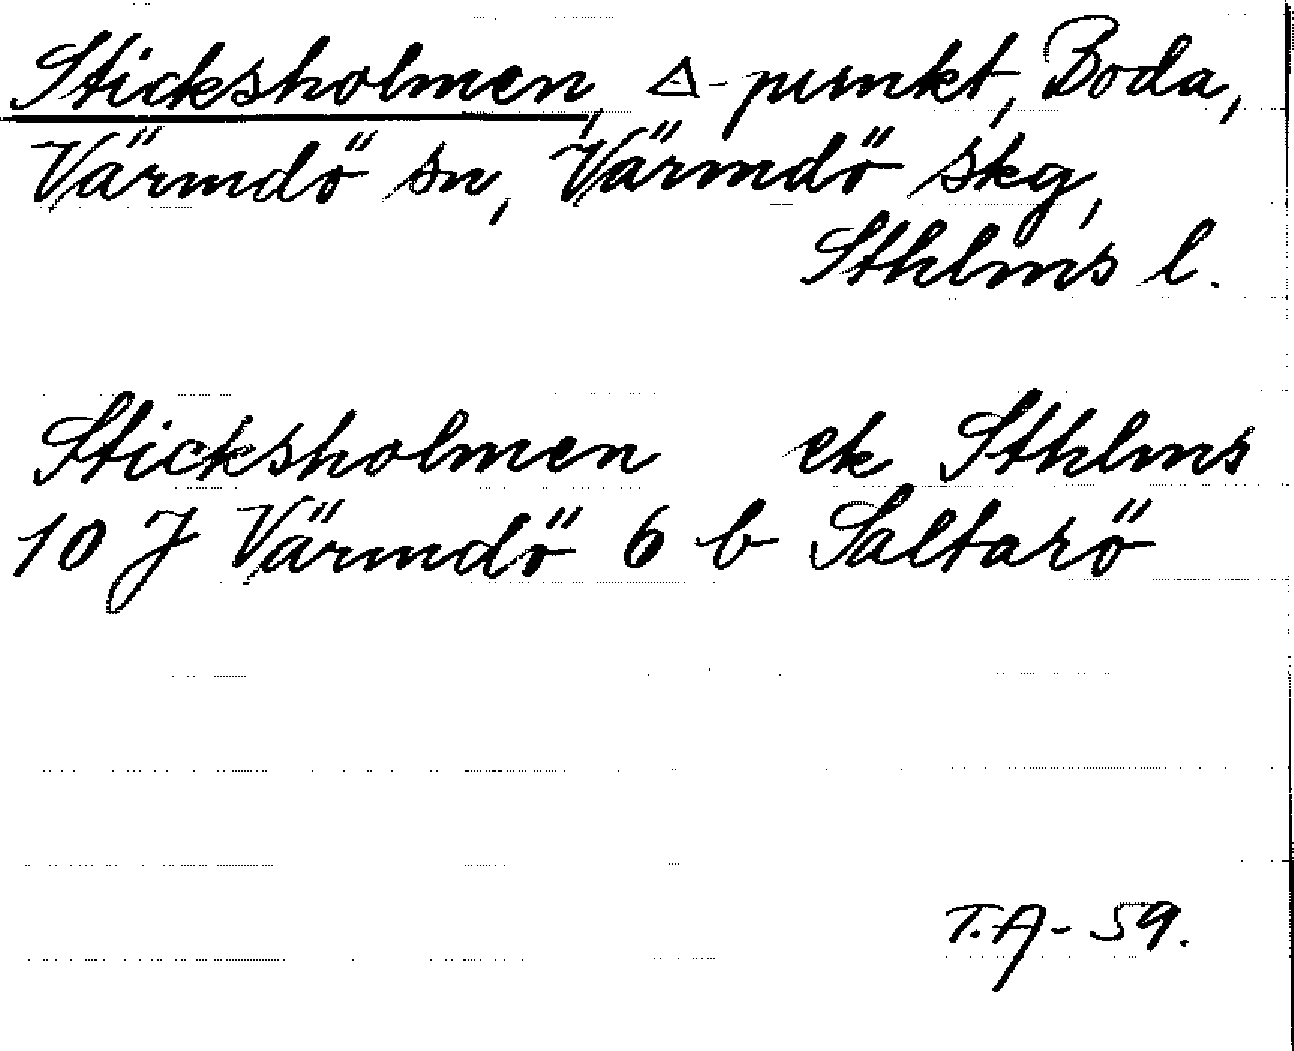 Sticksholmen, △-punkt, Boda,
Värmdö sn, Värmdö skg,
Sthlms l.
Sticksholmen ek Sthlms
10 J Värmdö 6 b Saltarö
T.A-59.